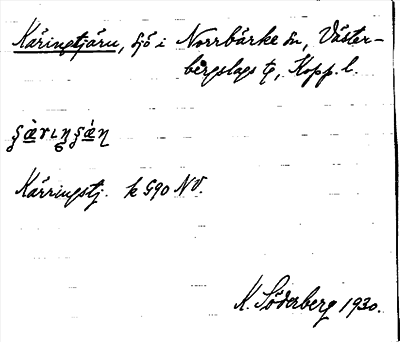 Käringtjärn, sjö i Norrbärke sn, Väster-
bergslags tg, Kopp. l.
Kärringtj. k G90 NV.
K. Söderberg 1930.